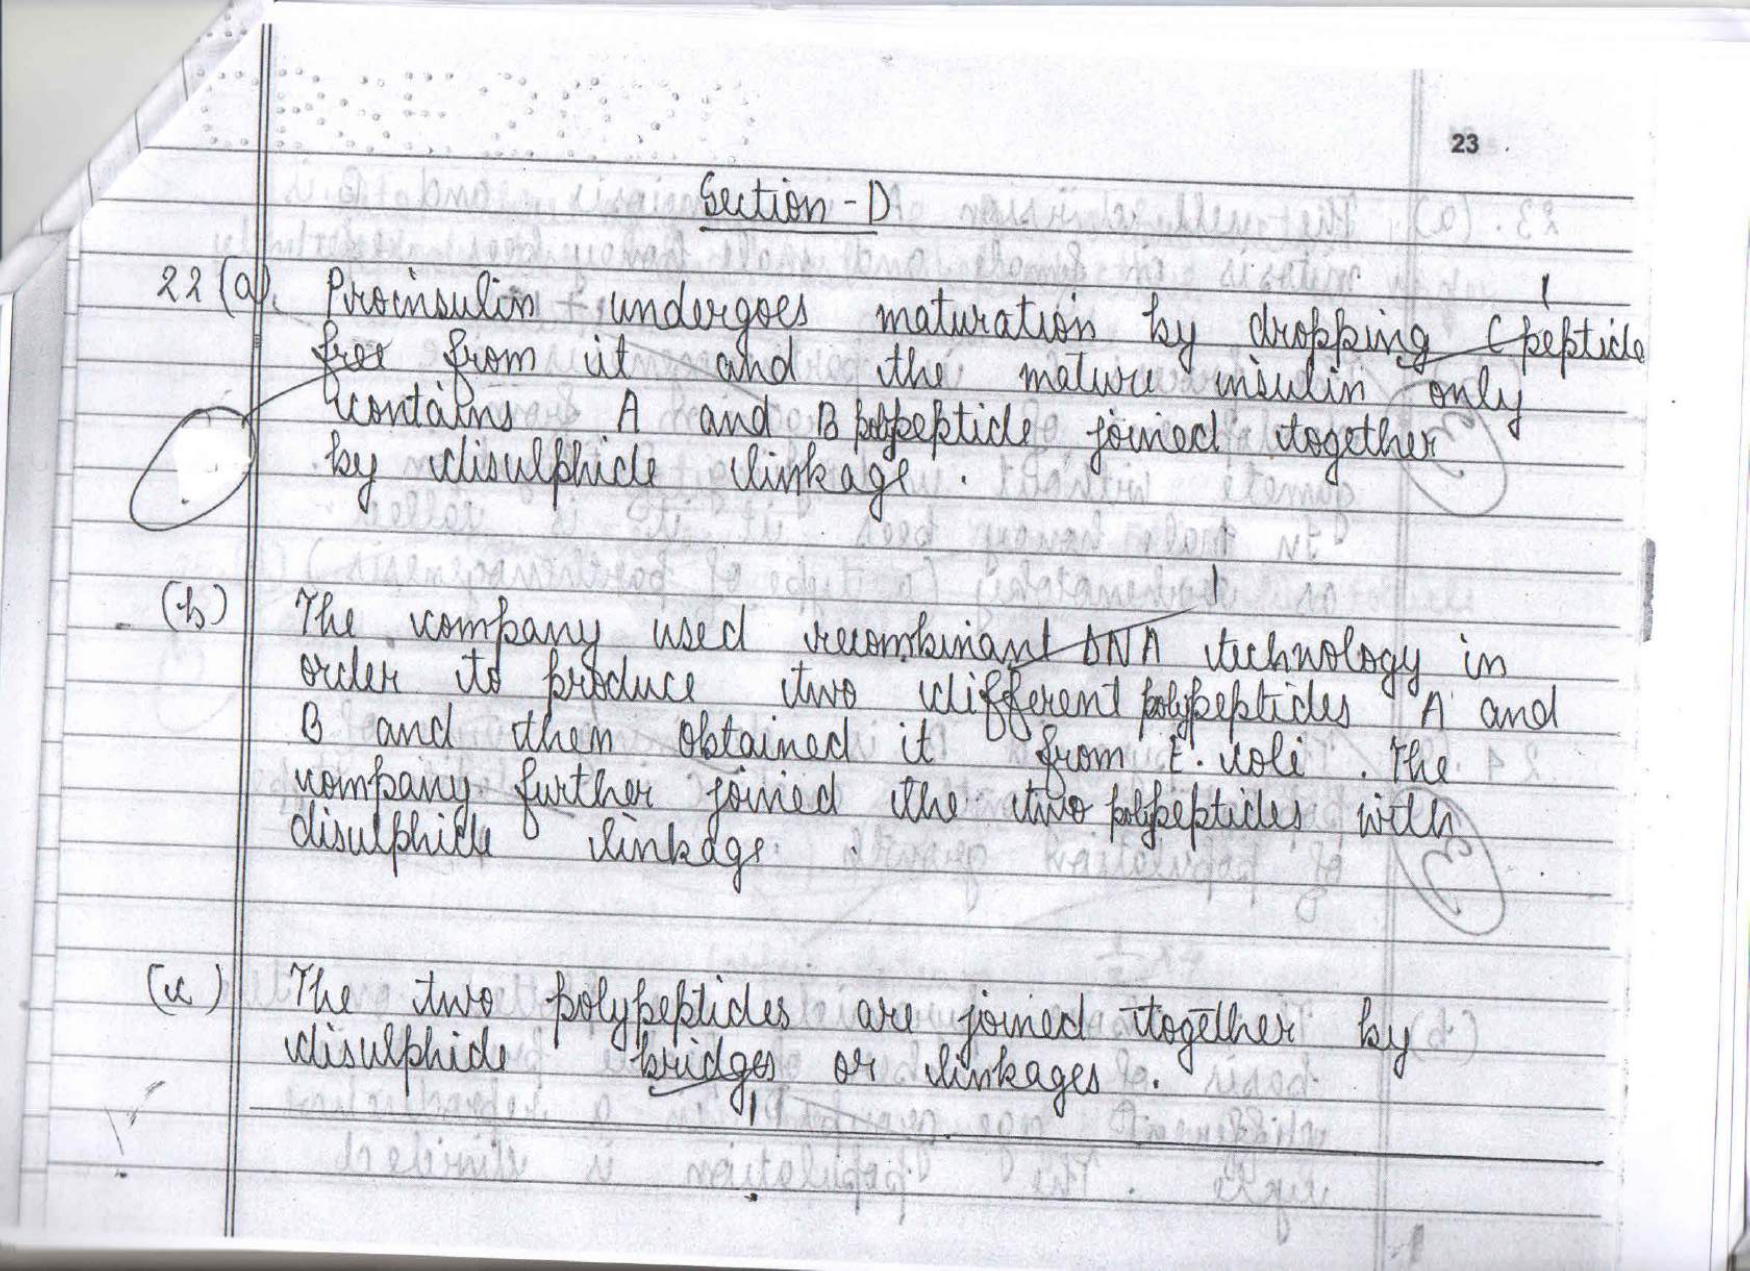 23
Section - D
22 (a). Proinsulin undergoes maturation by dropping C peptide
free from it and the mature insulin only
contains A and B polypeptide joined together
by disulphide linkage.
(b) The company used recombinant DNA technology in
order to produce two different polypeptides A and
B and then obtained it from E. coli. The
company further joined the two polypeptides with
disulphide linkage.
(c) The two polypeptides are joined together by
disulphide bridges or linkages.